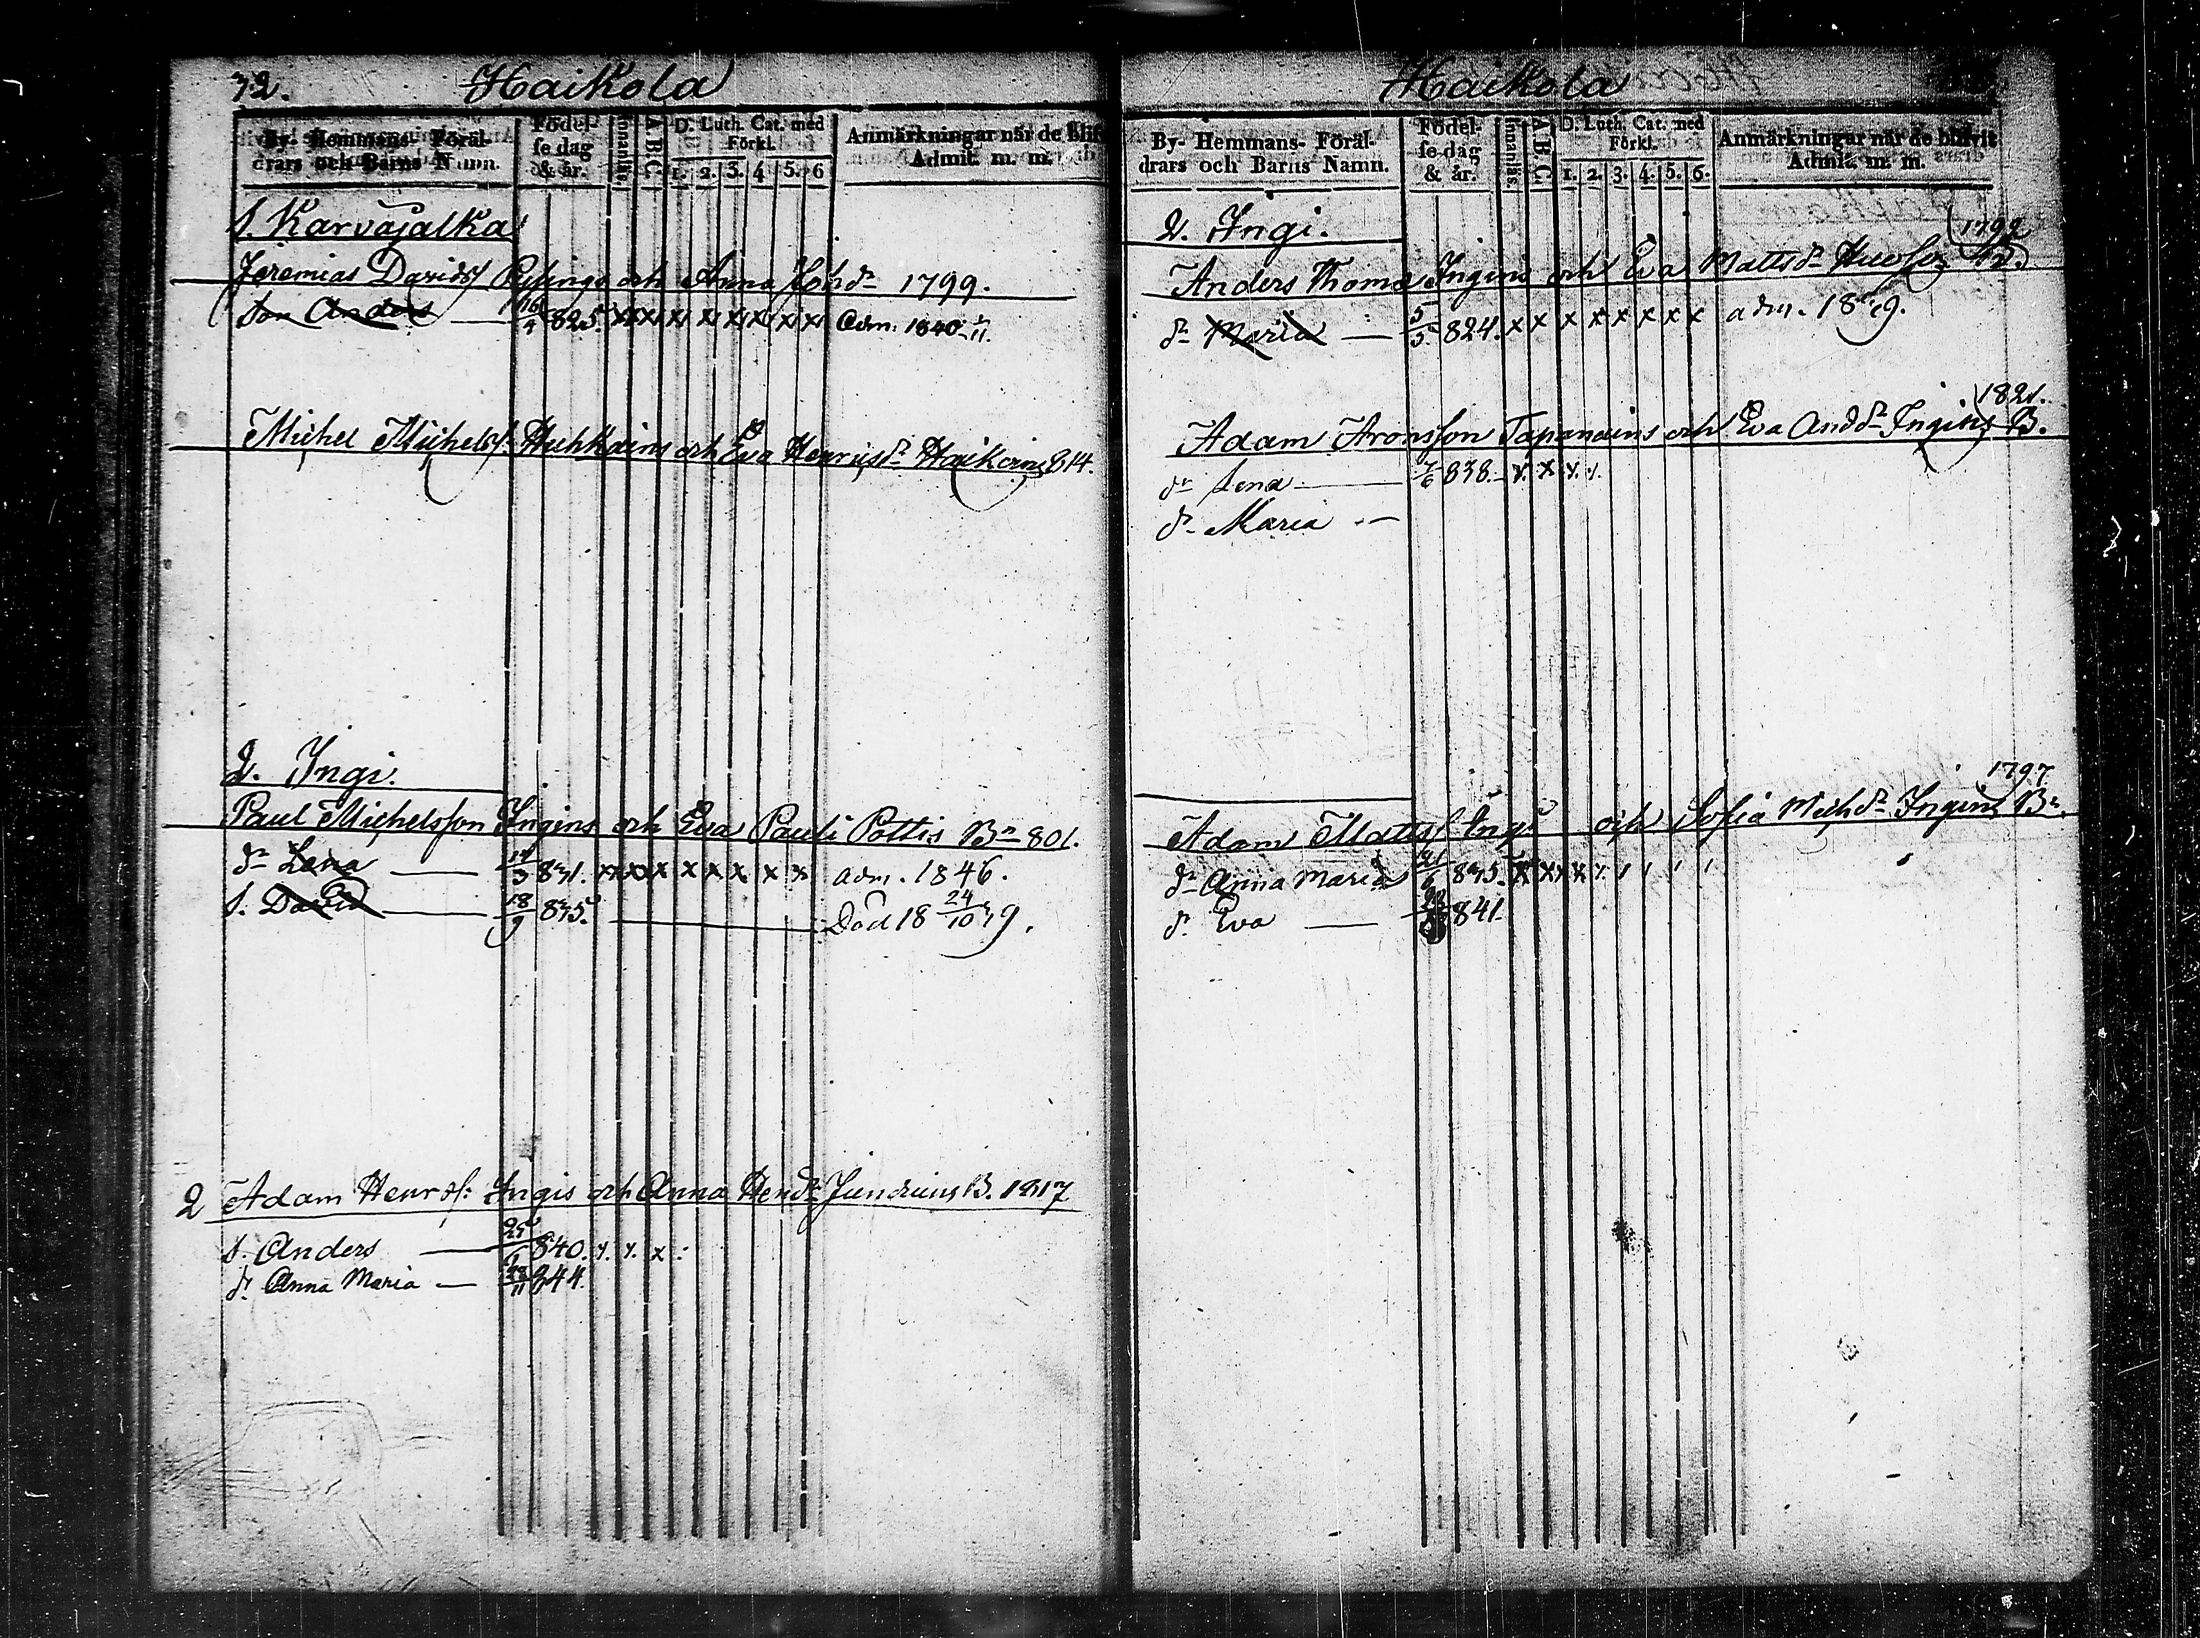 32. Haikola
By- Hemmans- Föräl- drars och Barns Namn. Födel- se dag & år. Innanläs. A B C. D. Luth. Cat. med Förkl. 1. 2. 3. 4 5. 6 Anmärkningar när de blif Admit. m. m.
1. Karvajalka
Jeremias Davidss och Anna Joh dr 1799.
Son Anders — 16/4 825. x x x x x x x x Adm: 1840
Michel Michelss: Huhkains och Eva Henricsdr Haikoins 814.
2. Ingi.
Paul Michelsson Ingins och Eva Pauli Pottis Bn 801.
dr Lena — 831. x x x x x x x x adm. 1846.
s. David — 18/9 835. — Död 18 24/10 39.
2 Adam Henrss: Ingis och Anna Hendr B. 1817
s. Anders — 840. x. x. x
dr Anna Maria — 844.
Haikola
By- Hemmans- Föräl- drars och Barns Namn. Födel- se dag & år. Innanläs. A. B. C. D. Luth. Cat. med Förkl. 1. 2. 3. 4. 5. 6. Anmärkningar när de blifvit Admit. m. m.
2. Ingi.
1792
Anders Thoms Ingins och Eva Matts dr
dr Maria — 5/5 824. x x x x x x x x adm. 1839.
1821.
Adam Aronsson Tapanains och Eva And dr Ingins B.
dr Lena — 838. x. x x. x.
dr Maria —
1797
Adam Mattss Ing och Sofia Mich dr Ingins Bn.
dr Anna Maria 21/6 835. x x x x
dr Eva — 841.